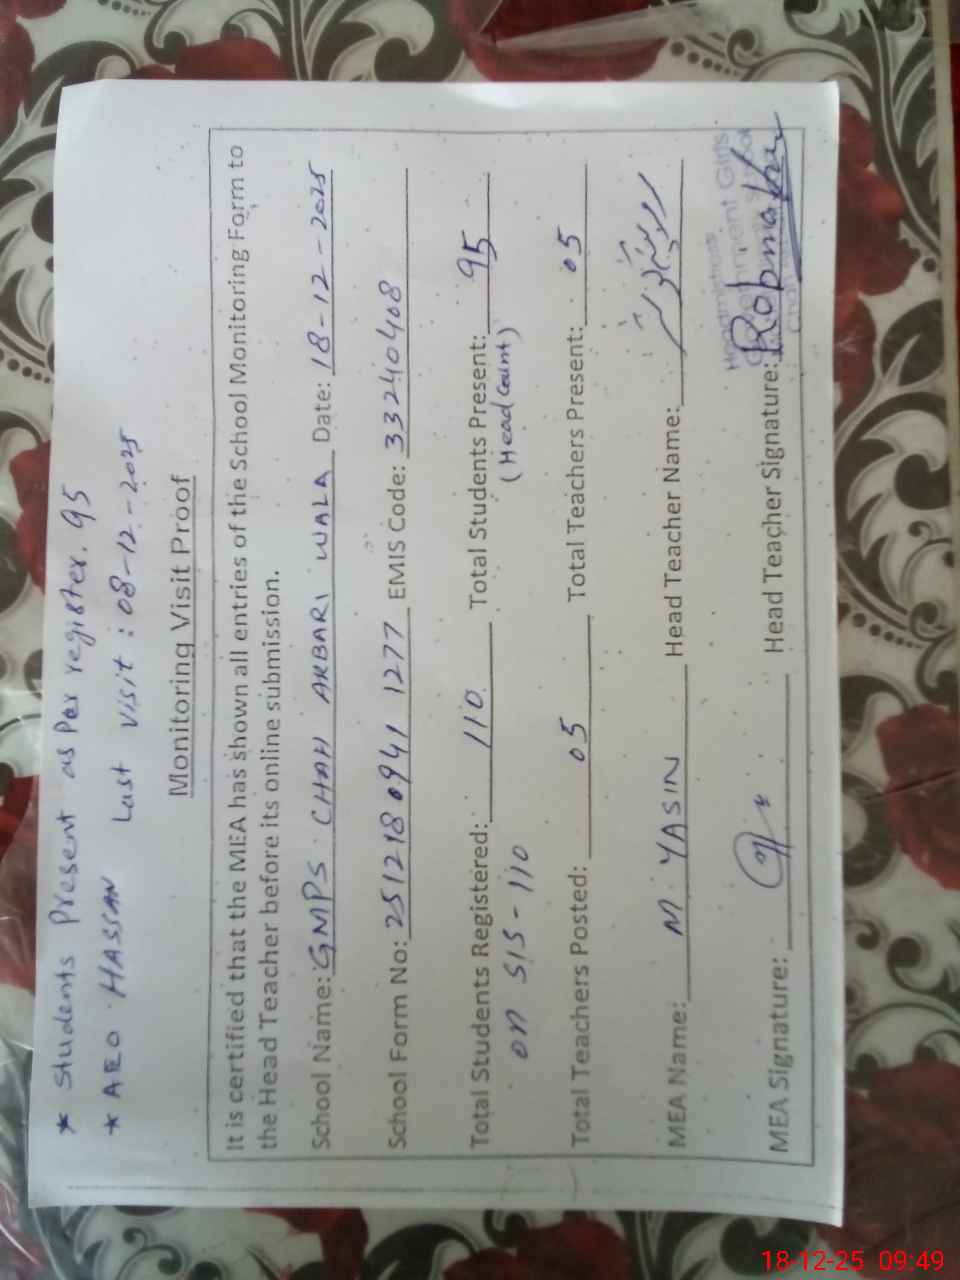 * Students Present as Per register. 95
* AEO HASSAN Last visit: 08-12-2025
Monitoring Visit Proof
It is certified that the MEA has shown all entries of the School Monitoring Form to
the Head Teacher before its online submission.
School Name: GMPS CHAH AKBARI WALA Date: 18-12-2025
School Form No: 251218 0941 1277 EMIS Code: 33240408
Total Students Registered: 110 Total Students Present: 95
on SIS-110 (Head Count)
Total Teachers Posted: 05 Total Teachers Present: 05
MEA Name: M. YASIN Head Teacher Name:
MEA Signature: Head Teacher Signature:
Headmistress
Government Girls
18-12-25 09:49